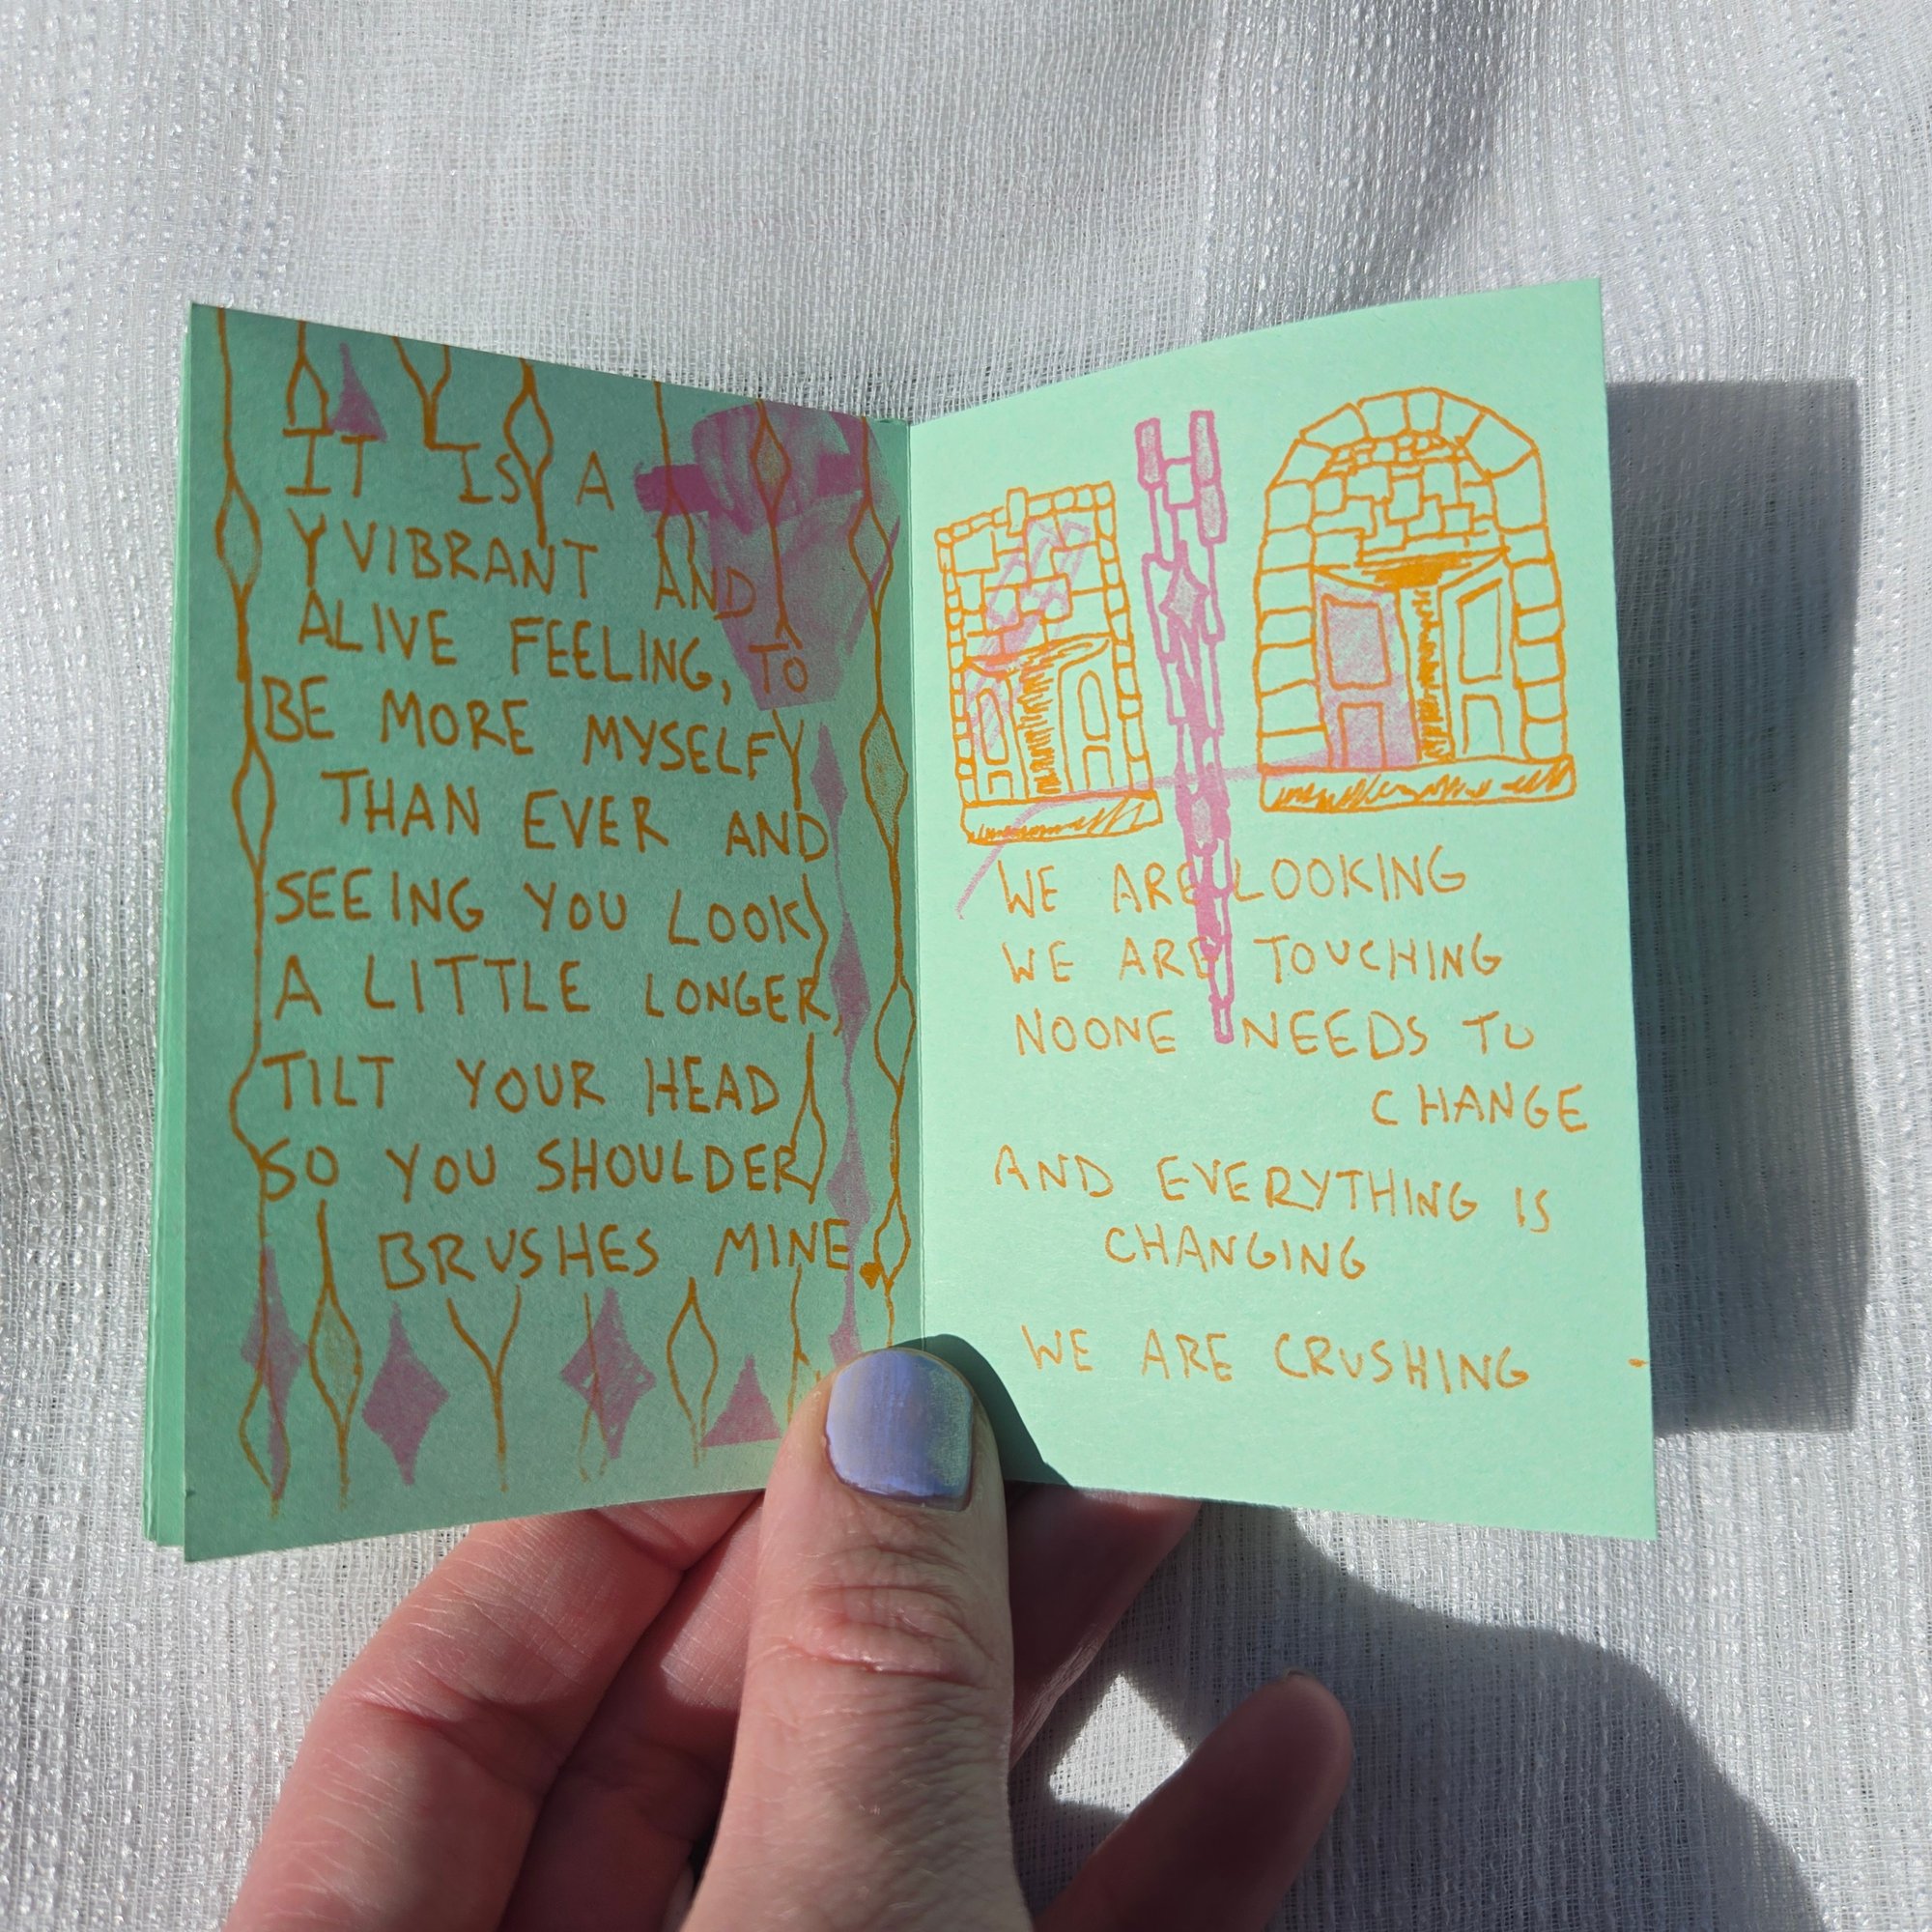 IT IS A
VIBRANT AND
ALIVE FEELING, TO
BE MORE MYSELF
THAN EVER AND
SEEING YOU LOOK
A LITTLE LONGER,
TILT YOUR HEAD
SO YOU SHOULDER
BRUSHES MINE.
WE ARE LOOKING
WE ARE TOUCHING
NOONE NEEDS TO
CHANGE
AND EVERYTHING IS
CHANGING
WE ARE CRUSHING